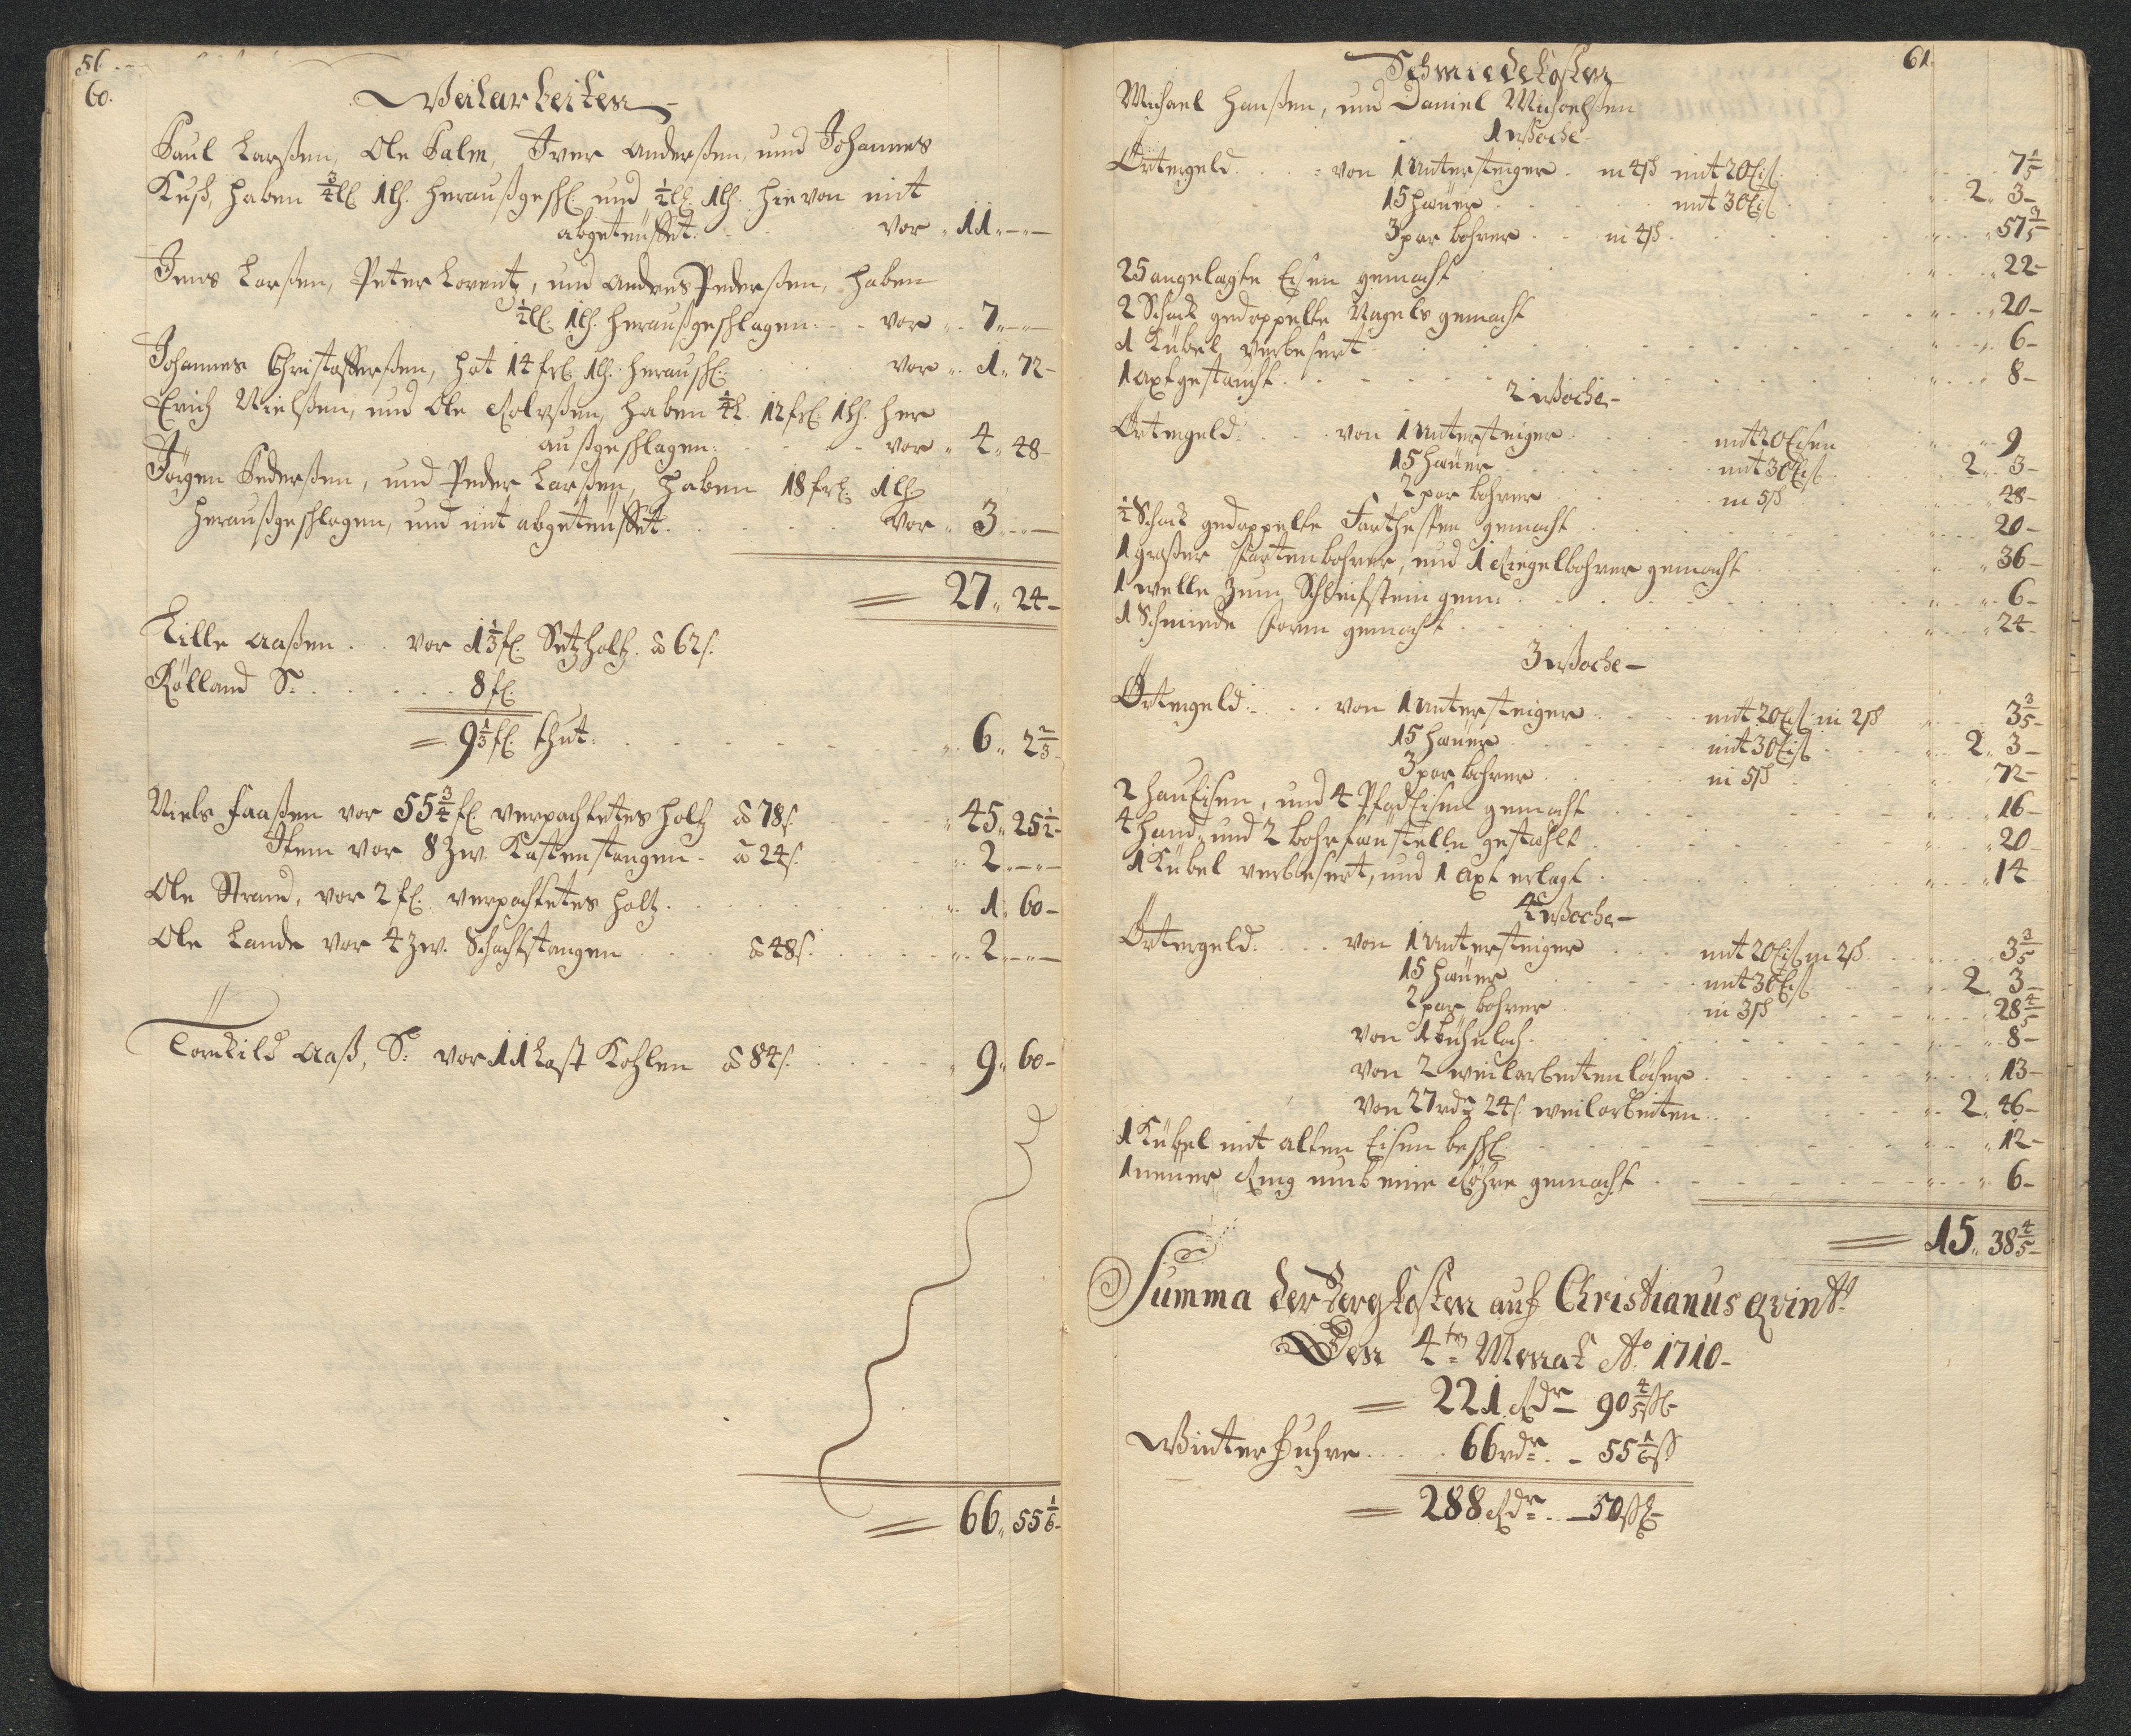 56.
60.
Weilarbeiten
Paul Larßen, Ole Palm, Iver Anderßen, und Johannes
Kuß, haben 3/4 ll. 1 lh. heraußgeschl. und 1/2 ll. 1 lh. hievon mit
abgeteüffet. vor 11 " — " —
Jens Larßen, Peter Lorentz, und Andres Pederßen, haben
1/2 ll. 1 lh. heraußgeschlagen. vor 7 " — " —
Johannes Christofferßen, hat 14 frl. 1 lh. herauschl. vor 1 " 72 -
Erich Nielßen, und Ole Rolvßen, haben 1/4 l. 12 frl. 1 lh. her
außgeschlagen. vor 4 " 48 -
Jörgen Pederßen, und Peder Larßen, haben 18 frl. 1 lh.
heraußgeschlagen, und mit abgeteüffet. vor 3 " — " —
= 27 " 24 -
Lille Aaßen . . vor 1 1/3 fl. Setzholtz . â 62 s.
Kölland S. . . . . . 8 fl.
= 9 1/3 fl. thut. 6 " 2 2/3 -
Niels Faaßen vor 55 3/4 fl. verpachtetes holtz â 78 s. 45 " 25 1/2 -
Item vor 8 zw. Kastenstangen . â 24 s. 2 " — " —
Ole Strand, vor 2 fl. verpachtetes holtz. 1 " 60 -
Ole Lande vor 4 zw. Schachtstangen . . . â 48 s. 2 " — " —
Torckild Aaß, S. vor 11 Last Kohlen â 84 s. 9 " 60 -
= 66 " 55 1/6 -
61.
Schmiedekosten
Michael Hanßen, und Daniel Michelßen
1 Woche
Örtergeld . . . von 1 Untersteiger . in 4 ß mit 20 Eiß. 7 1/5
15 Haüer mit 30 Eiß. 2 " 3 -
3 par bohrer . . in 4 ß . 57 3/5
25 angelegte Eisen gemacht 22 -
2 Schock gedoppelte Nagels gemacht 20 -
1 Kübel verbesert 6 -
1 Axt gestaücht 8 -
2 Woche -
Örtergeld . . . von 1 Untersteiger mit 20 Eisen 9
15 Haüer mit 30 Eiß. 2 " 3 -
2 par bohrer in 5 ß 48 -
1/2 Schock gedoppelte Farthesten gemacht 20 -
1 großer Kartenbohrer, und 1 Riegelbohrer gemacht 36 -
1 welle zum Schleifstein gem. 6 -
1 Schmiede form gemacht 24 -
3 Woche -
Örtergeld . . . von 1 Untersteiger . . mit 20 Eiß. in 2 ß 3 3/5 -
15 Haüer mit 30 Eiß. 2 " 3 -
3 par bohrer in 5 ß 72 -
2 HauEisen, und 4 PfadEisen gemacht 16 -
4 Hand- und 2 bohrfaüstelln gestählt 20 -
1 Kübel verbesert, und 1 Axt erlegt 14
4 Woche -
Örtergeld . . . von 1 Untersteiger . . mit 20 Eiß. in 2 ß 3 3/5
15 Haüer mit 30 Eiß. 2 " 3 -
2 par bohrer in 3 ß 28 4/5
von 1 bühnloch. 8 -
von 2 weilarbeitenlöcher 13 -
von 27 rdr 24 s. weilarbeiten . . 2 " 46 -
1 Kübel mit alten Eisen beschl. 12 -
1 neüer Ring umb eine Röhre gemacht 6 -
= 15 " 38 4/5 -
Summa der Bergkosten auf Christianus Qvint.
Den 4ten Monat Ao 1710 -
= 221 Rdr - 90 4/5 ßl -
Winterfuhre . . . 66 rdr. - 55 1/6 ß
= 288 Rdr. - 50 ßl -